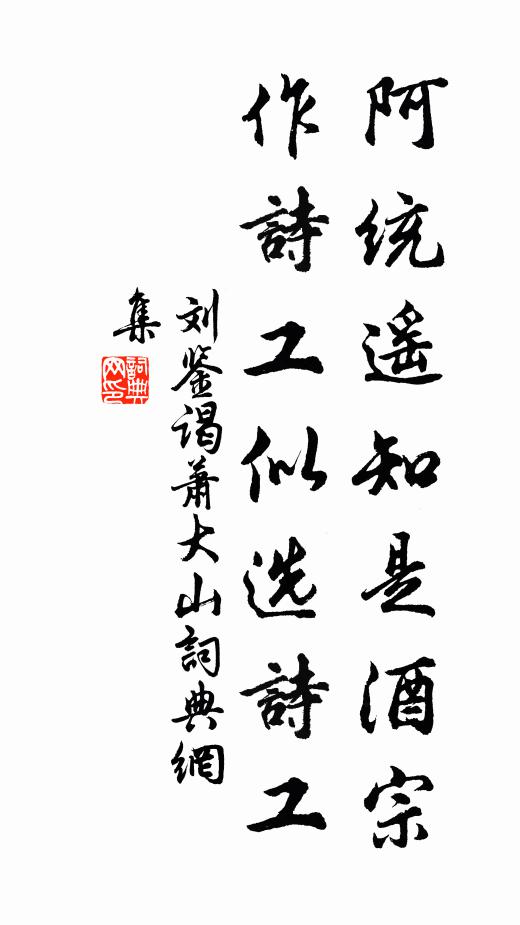 阿统遥知是酒宗
作詩工似选詩工
刘鉴谒萧大山詞典網
集
詞典
网印